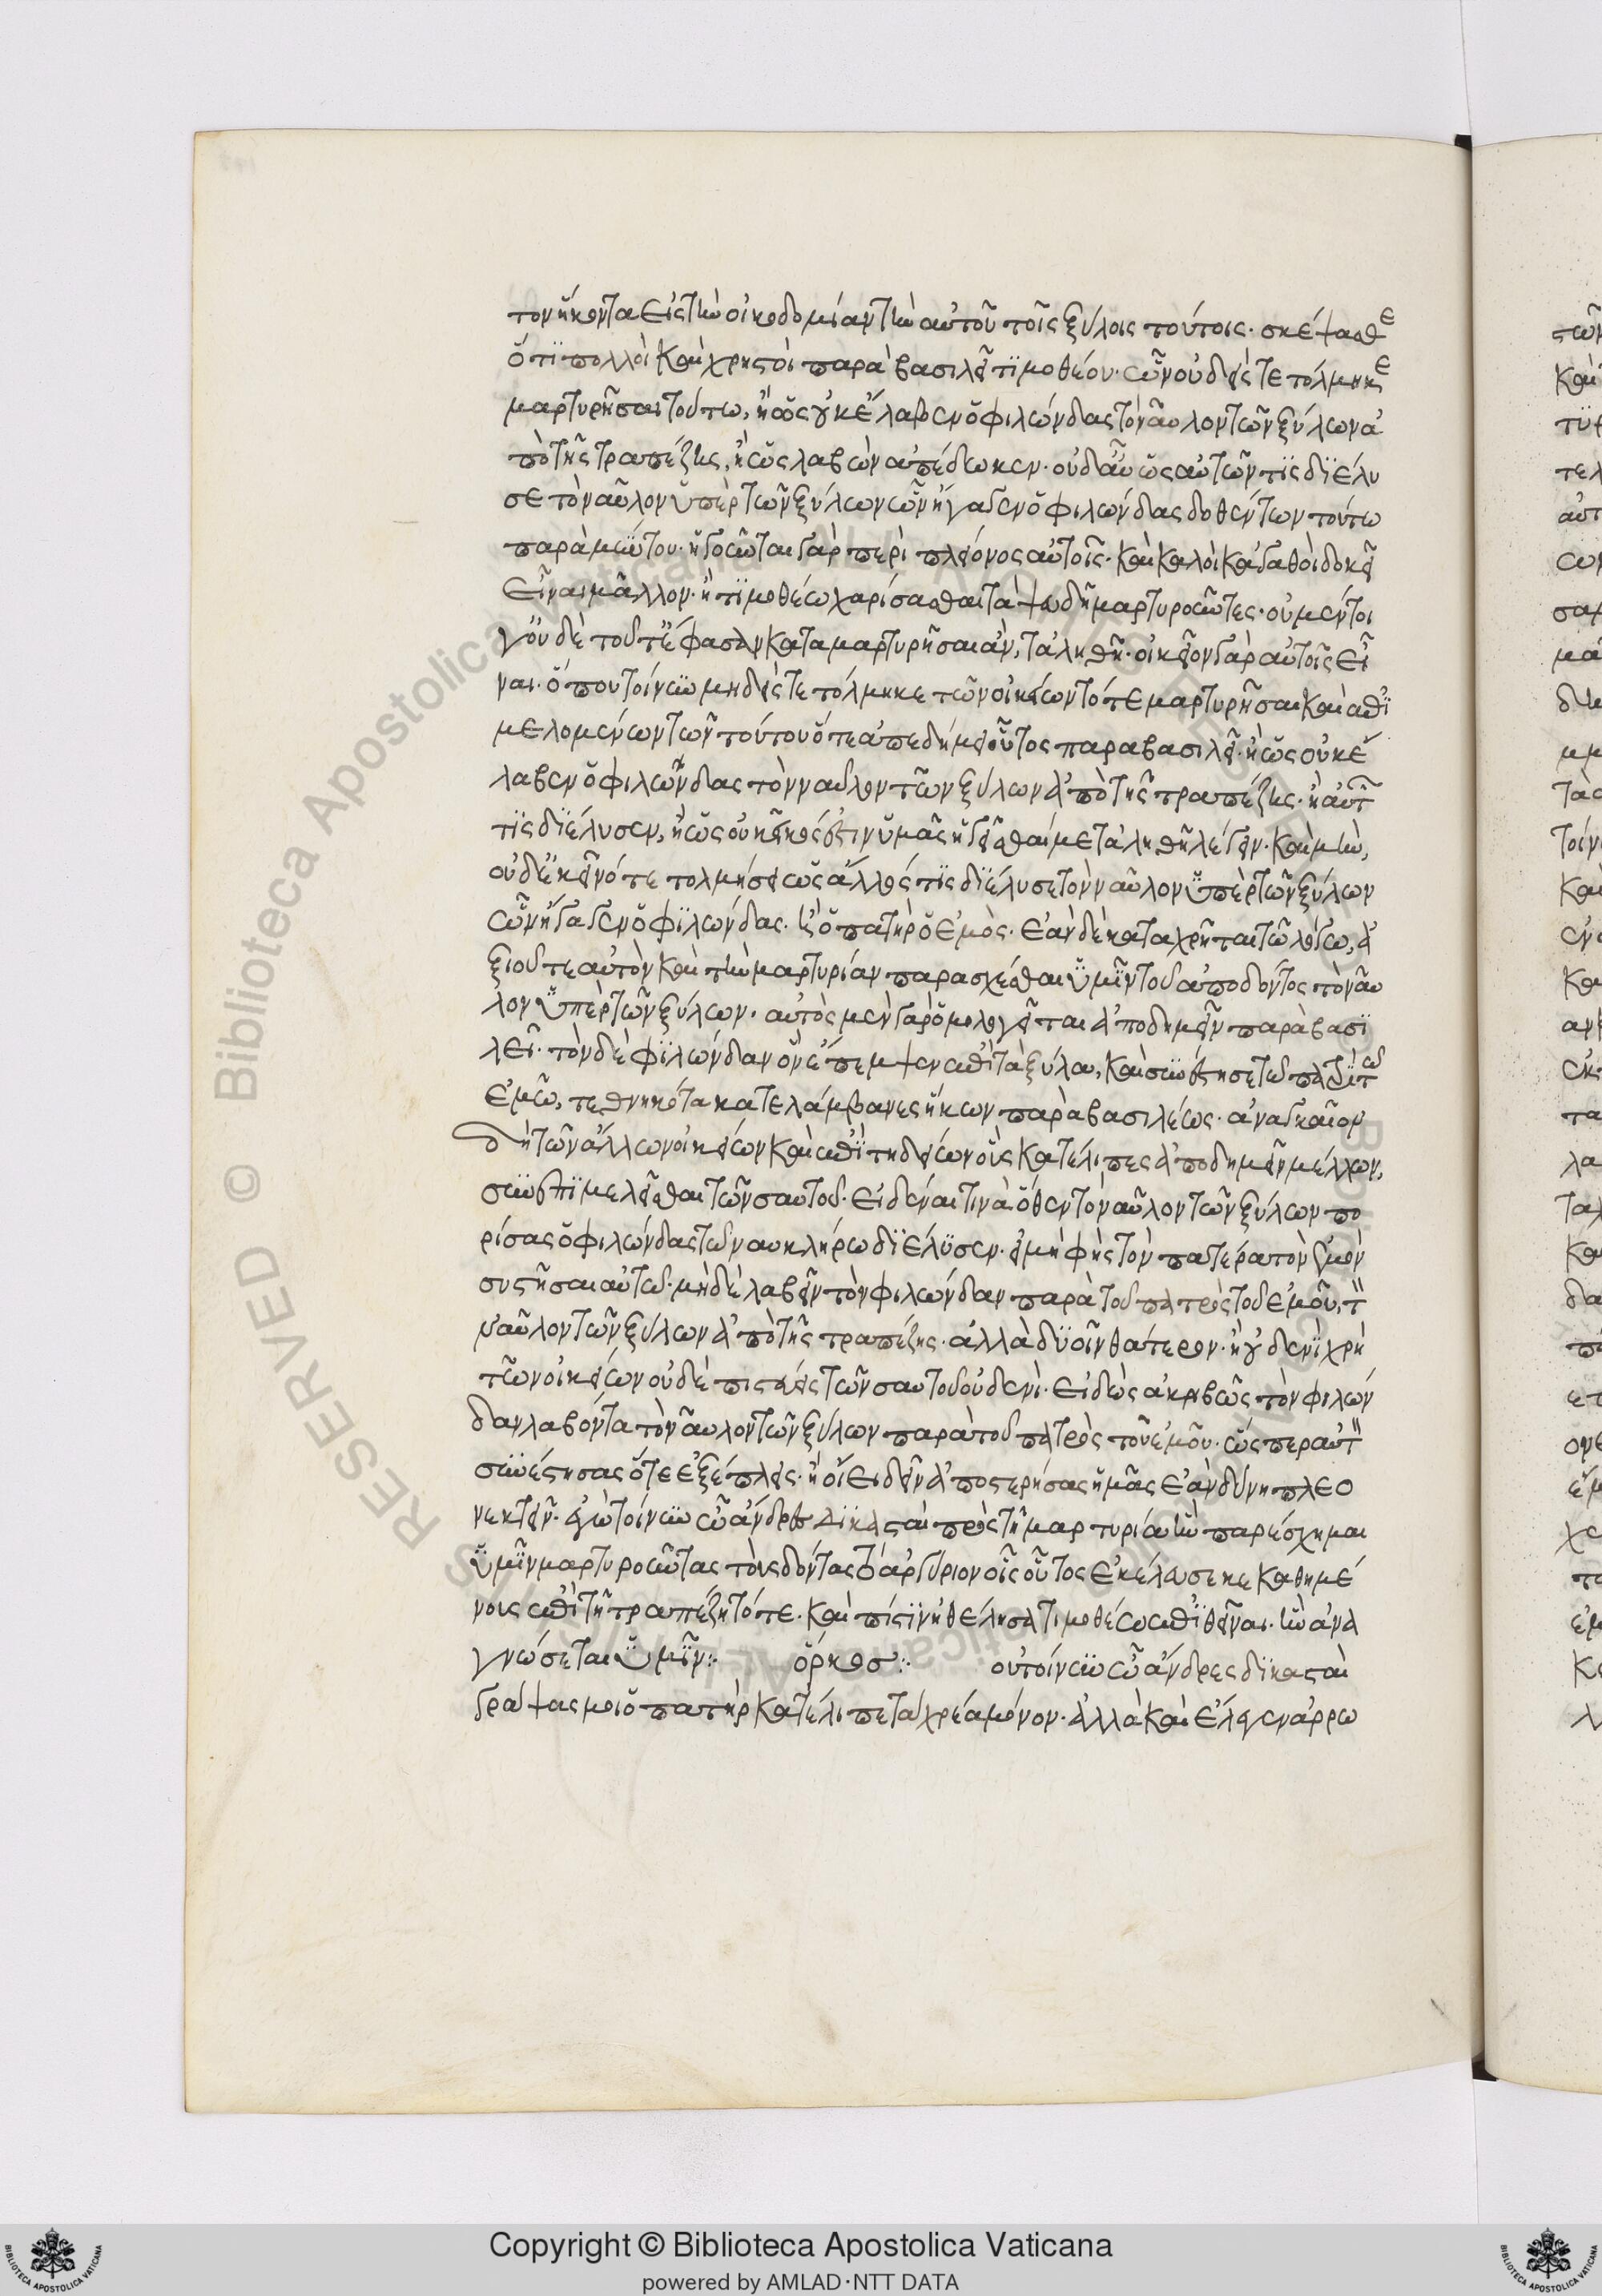 τον ἥκοντα εἰς τὴν οἰκοδομίαν τὴν αὐτοῦ τοῖς ξύλοις τούτοις. σκέψασθε
ὅτι πολλοὶ καὶ χρηστοὶ παρὰ βασιλεῖ τιμοθέου. ὧν οὐδεὶς τετόλμηκε
μαρτυρῆσαι τούτω, ἢ ὡς οὐκ ἔλαβεν ὁ φιλώνδας τὸ ναῦλον τῶν ξύλων ἀ
πὸ τῆς τραπέζης, ἢ ὡς λαβὼν ἀπέδωκεν. οὐδ' αὖ ὡς αὐτῶν τὶς διέλυ
σε τὸ ναῦλον ὑπὲρ τῶν ξύλων ὧν ἤγαγεν ὁ φιλώνδας δοθέντων τούτω
παρὰ μύντου. ἡγοῦνται γὰρ περὶ πλείονος αὐτοῖς. καὶ καλοὶ κἀγαθοὶ δοκεῖ
εἶναι μᾶλλον. ἢ τιμοθέω χαρίσασθαι τὰ ψευδῆ μαρτυροῦντες. οὐ μέντοι
γ' οὐδὲ τούτ' ἔφασαν καταμαρτυρῆσαι ἂν, τἀληθῆ. οἰκεῖον γὰρ αὐτοῖς εἶ
ναι. ὅπου τοίνυν μηδεὶς τετόλμηκε τῶν οἰκείων τότε μαρτυρῆσαι καὶ ἐπι
μελομένων τῶν τούτου ὅτε ἀπεδήμει οὗτος παρα βασιλεῖ. ἢ ὡς οὐκ ἔ
λαβεν ὁ φιλώνδας τὸν ναῦλον τῶν ξύλων ἀπὸ τῆς τραπέζης. ἢ αὐτῶν
τὶς διέλυσεν, ἢ ὡς οὐκ εἰκός ἐστιν ὑμᾶς ἡγεῖσθαί με τἀληθῆ λέγειν. καὶ μὴν,
οὐδ' ἐκεῖνό τε τολμήσει ὡς ἄλλος τὶς διέλυσε τὸν ναῦλον ὑπὲρ τῶν ξύλων
ὧν ἤγαγεν ὁ φιλώνδας. ἢ ὁ πατὴρ ὁ ἐμὸς. ἐὰν δὲ καταχρῆται τῶ λόγω, ἀ
ξιοῦτε αὐτὸν καὶ τὴν μαρτυρίαν παρασχέσθαι ὑμῖν τοῦ ἀποδόντος τὸ ναῦ
λον ὑπὲρ τῶν ξύλων. αὐτὸς μὲν γὰρ ὁμολογεῖται ἀποδημεῖν παρὰ βασι
λεῖ. τὸν δὲ φιλώνδαν ὃν ἔπεμψεν ἐπὶ τὰ ξύλα, καὶ συνέστησε τῶ πατρὶ τῶ
ἐμῶ, τεθνηκότα κατελάμβανες ἥκων παρὰ βασιλέως. ἀναγκαῖον
δὴ τῶν ἄλλων οἰκείων καὶ ἐπιτηδείων οὓς κατέλιπες ἀποδημεῖν μέλλων,
συνεπιμελεῖσθαι τῶν σαυτοῦ. εἰδέναι τινὰ ὅθεν τὸ ναῦλον τῶν ξύλων πο
ρίσας ὁ φιλώνδας τῶ ναυκλήρω διέλυσεν. εἰ μὴ φῂς τὸν πατέρα τὸν ἐμὸν
συστῆσαι αὐτῶ. μηδὲ λαβεῖν τὸν φιλώνδαν παρὰ τοῦ πατρὸς τοῦ ἐμοῦ, τὸ
ναῦλον τῶν ξύλων ἀπὸ τῆς τραπέζης. ἀλλὰ δυοῖν θάτερον. ἢ οὐδενὶ χρῇ
τῶν οἰκείων οὐδὲ πιστεύεις τῶν σαυτοῦ οὐδενὶ. εἰδὼς ἀκριβῶς τὸν φιλών
δαν λαβόντα τὸ ναῦλον τῶν ξύλων παρὰ τοῦ πατρὸς τοῦ ἐμοῦ. ὧπερ αὐτὸν
συνέστησας ὅτε ἐξέπλεις. ἢ οἴει δεῖν ἀποστερήσας ἡμᾶς ἐὰν δύνῃ πλεο
νεκτεῖν. ἐγὼ τοίνυν ὦ ἄνδρες δικασταὶ πρὸς τῆ μαρτυρία ἣν παρέσχημαι
ὑμῖν μαρτυροῦντας τοὺς δόντας τὸ ἀργύριον οἷς οὗτος ἐκέλευσε κε καθημέ
νους ἐπὶ τῆ τραπέζη τότε. καὶ πίστιν ἠθέλησα τιμοθέω ἐπιθεῖναι. ἣν ἀνα
γνώσεται ὑμῖν:. ὅρκοσ:. οὐ τοίνυν ὦ ἄνδρες δικασταὶ
γράψας μοι ὁ πατὴρ κατέλιπε τὰ χρέα μόνον. ἀλλὰ καὶ ἔλεγεν ἀρρω